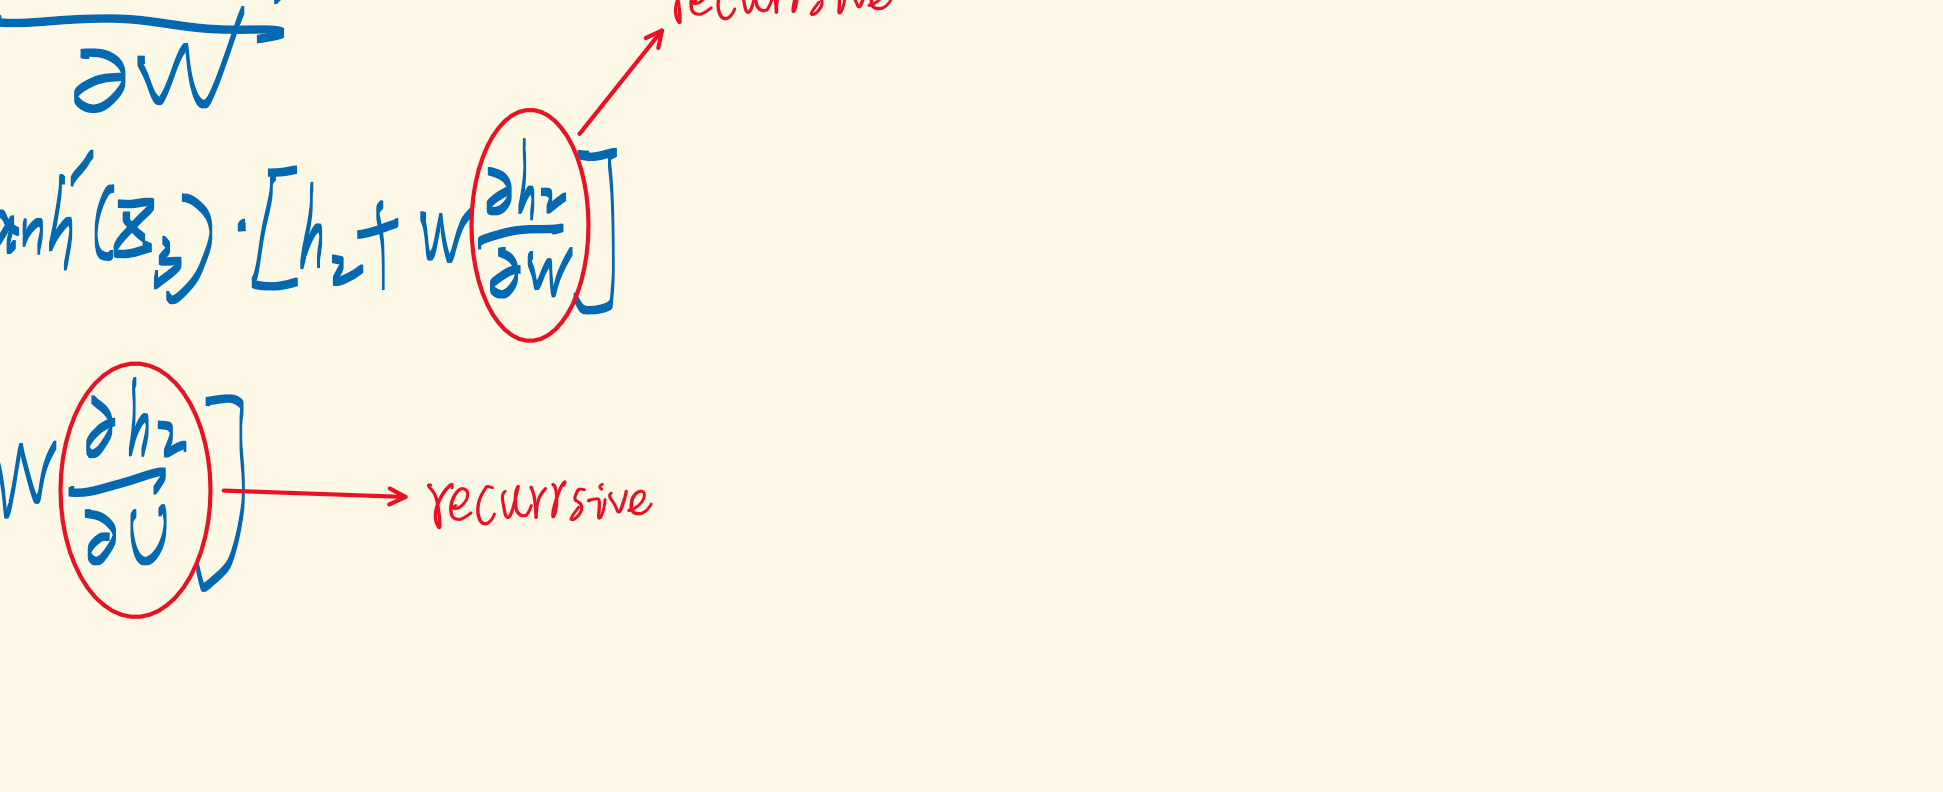 recurrsive
∂W
anh'(z₃)·[h₂+W ∂h₂/∂W]
W ∂h₂/∂U] recurrsive